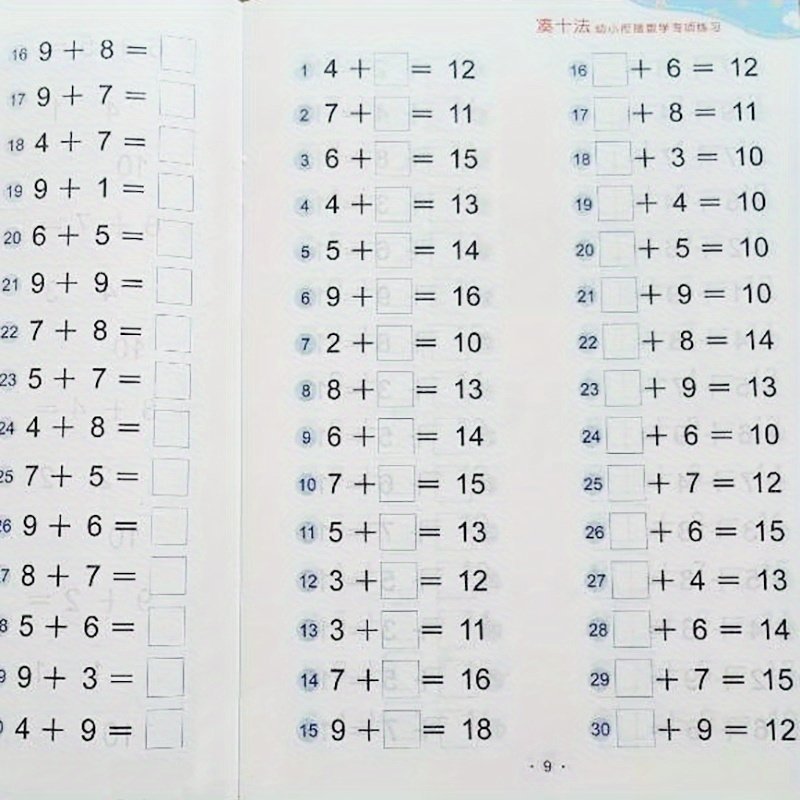 16 9 + 8 = □
17 9 + 7 = □
18 4 + 7 = □
19 9 + 1 = □
20 6 + 5 = □
21 9 + 9 = □
22 7 + 8 = □
23 5 + 7 = □
24 4 + 8 = □
25 7 + 5 = □
26 9 + 6 = □
7 8 + 7 = □
8 5 + 6 = □
9 9 + 3 = □
4 + 9 = □
凑十法 幼小衔接数学专项练习
1 4 + □ = 12
2 7 + □ = 11
3 6 + □ = 15
4 4 + □ = 13
5 5 + □ = 14
6 9 + □ = 16
7 2 + □ = 10
8 8 + □ = 13
9 6 + □ = 14
10 7 + □ = 15
11 5 + □ = 13
12 3 + □ = 12
13 3 + □ = 11
14 7 + □ = 16
15 9 + □ = 18
16 □ + 6 = 12
17 □ + 8 = 11
18 □ + 3 = 10
19 □ + 4 = 10
20 □ + 5 = 10
21 □ + 9 = 10
22 □ + 8 = 14
23 □ + 9 = 13
24 □ + 6 = 10
25 □ + 7 = 12
26 □ + 6 = 15
27 □ + 4 = 13
28 □ + 6 = 14
29 □ + 7 = 15
30 □ + 9 = 12
· 9 ·